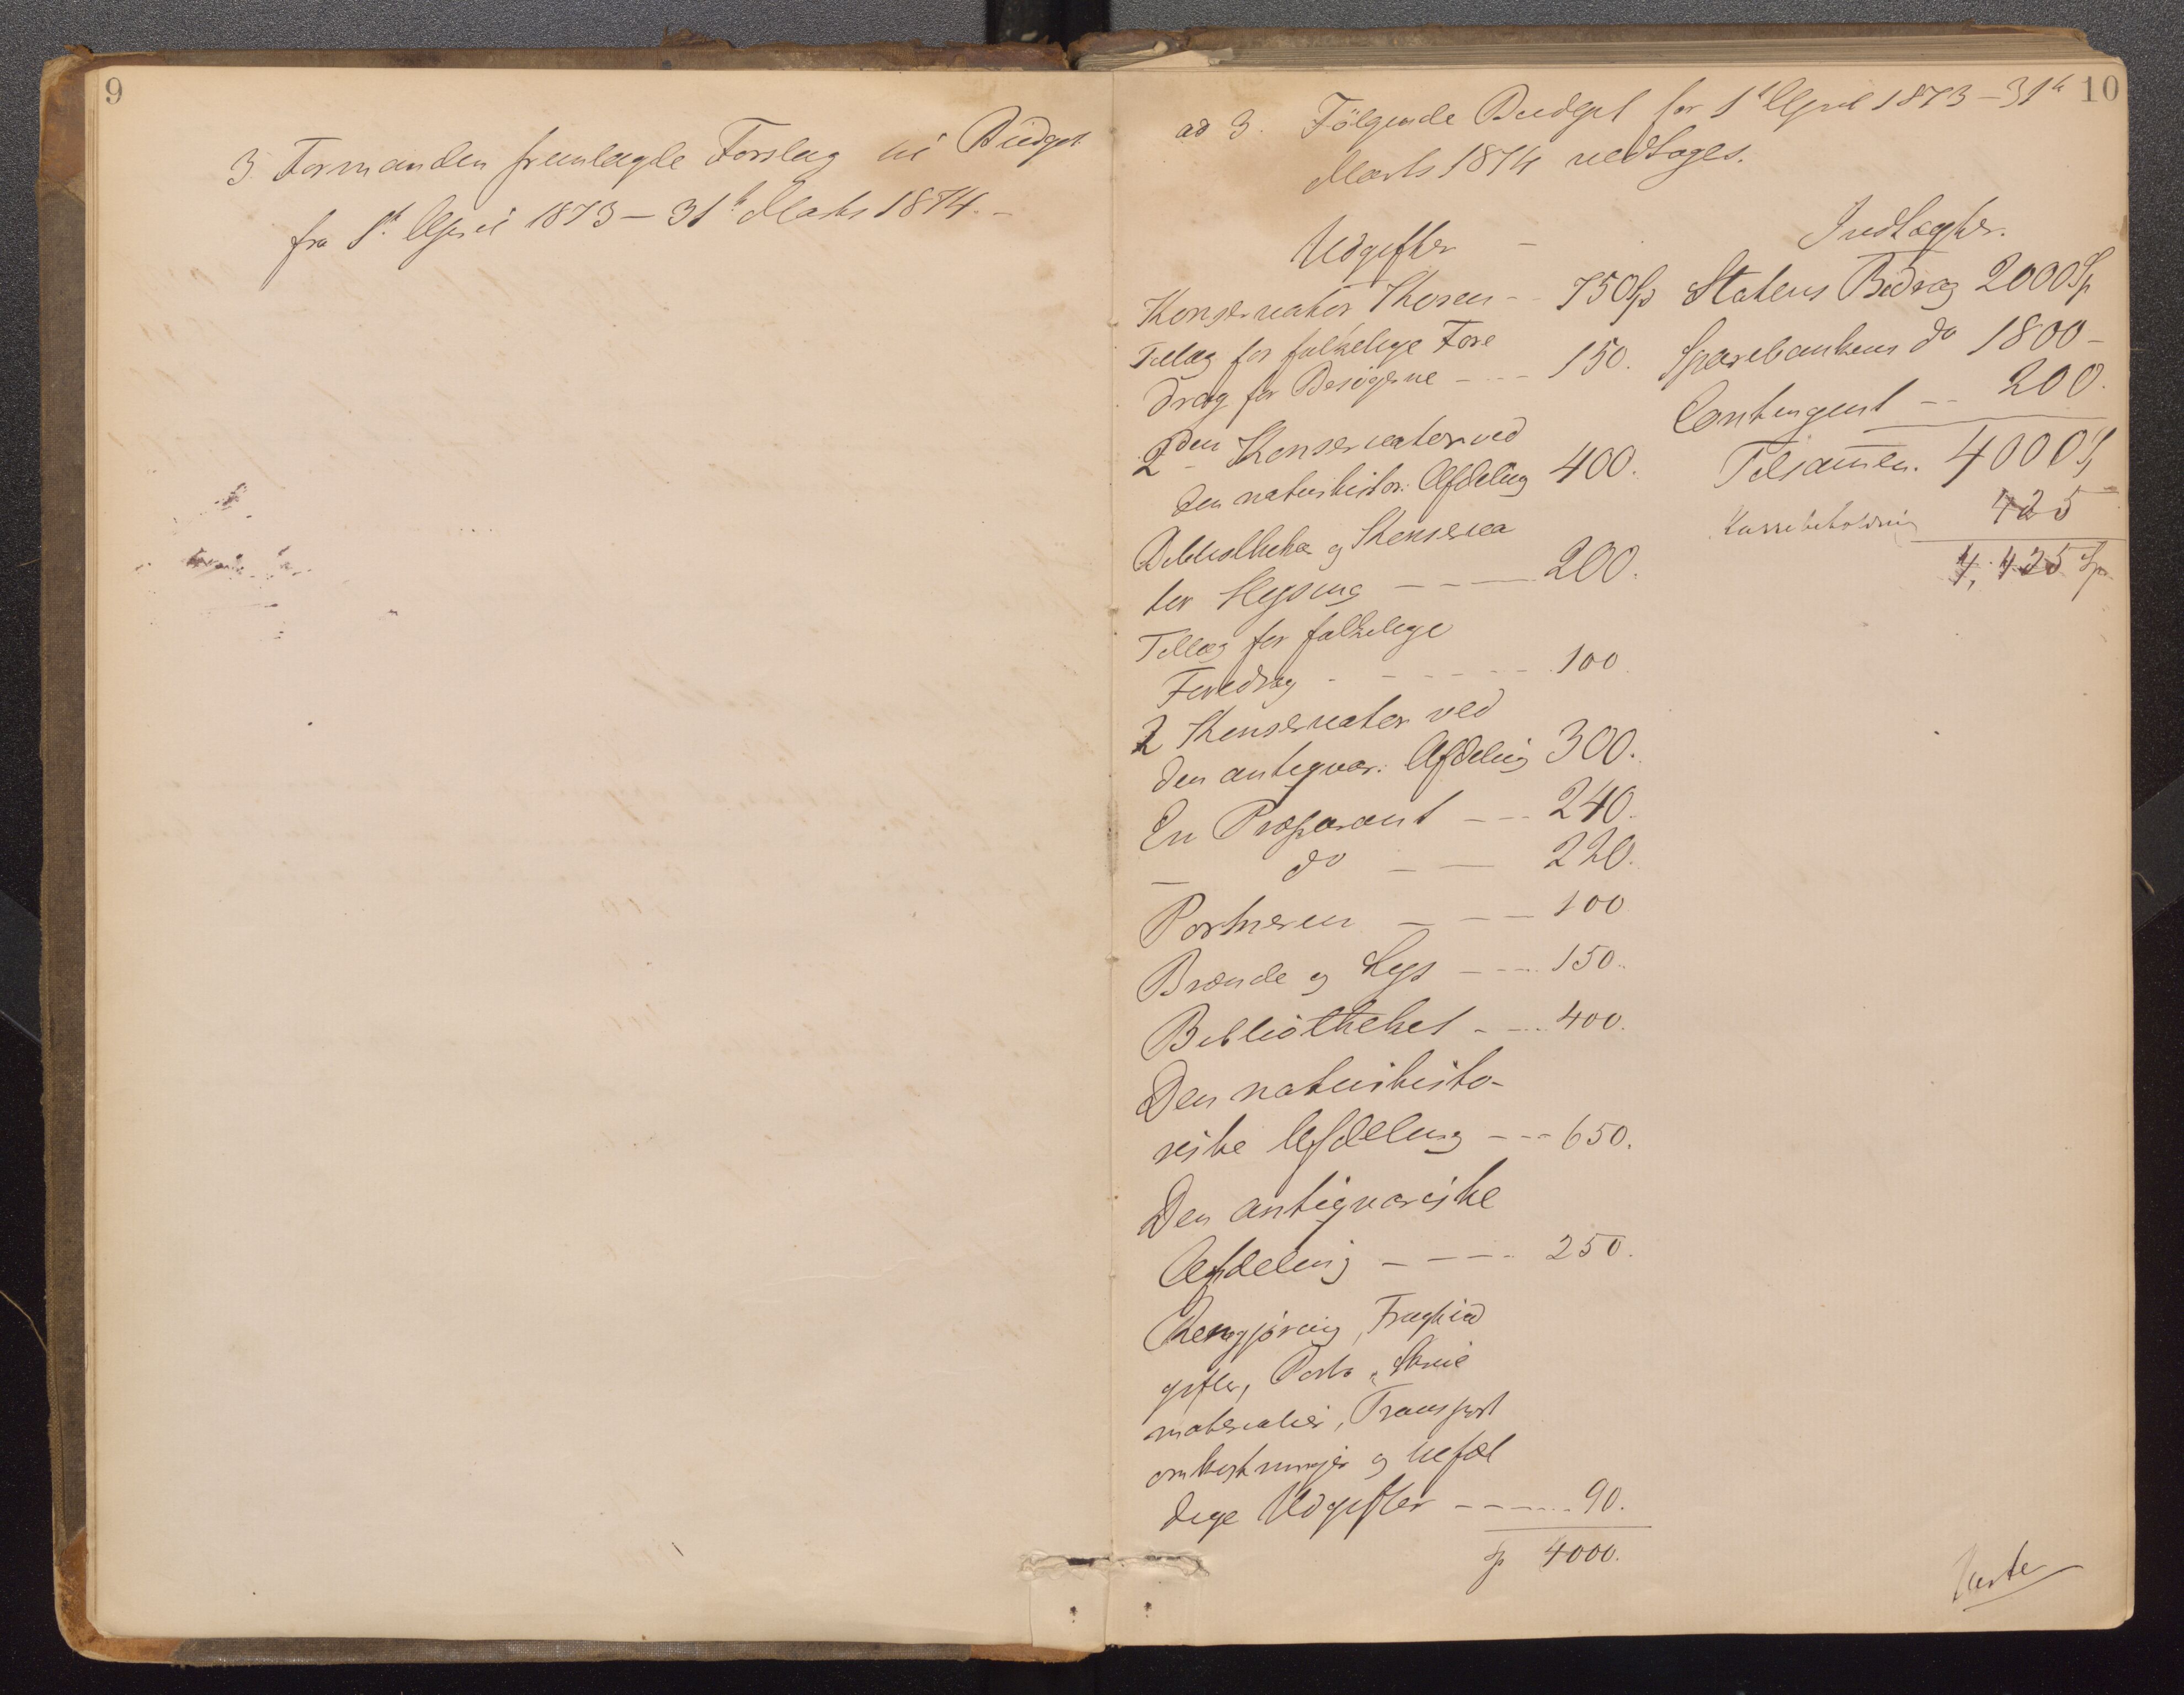 9
3. Formanden fremlagde Forslag til Budget
fra 1st April 1873 – 31te Marts 1874. –
10
ad 3. Følgende Budget for 1st April 1873 – 31te
Marts 1874 vedtoges.
Udgifter –
Konservator Koren – – 750 Sp
Tillæg for folkelige Fore
drag for Besøgerne – – – 150.
2den Konservator ved
den naturhistor: Afdeling 400.
Bibliothekar og Konserva
tor – – – 200.
Tillæg for folkelige
Foredrag – – – – – 100.
2 Konservator ved
den antiqvar: Afdeling 300.
En Præparant – – – 240.
– do – – 220.
Portneren – – – 100
Brænde og Lys – – – 150.
Bibliotheket – – – 400.
Den naturhisto-
riske Afdeling – – – 650.
Den antiqvariske
Afdeling – – – – 250.
Rengjøring, Fragtud
gifter, Porto, Skrive
materialier, Transport
omkostninger og tilfæl
dige Udgifter – – – – 90.
Sp 4000.
Indtægter.
Statens Bidrag 2000 Sp
Sparebankens do 1800 –
Contingent – – 200.
Tilsammen. 4000 Sp
Kassebeholdning 425
4,425 Sp
Verte